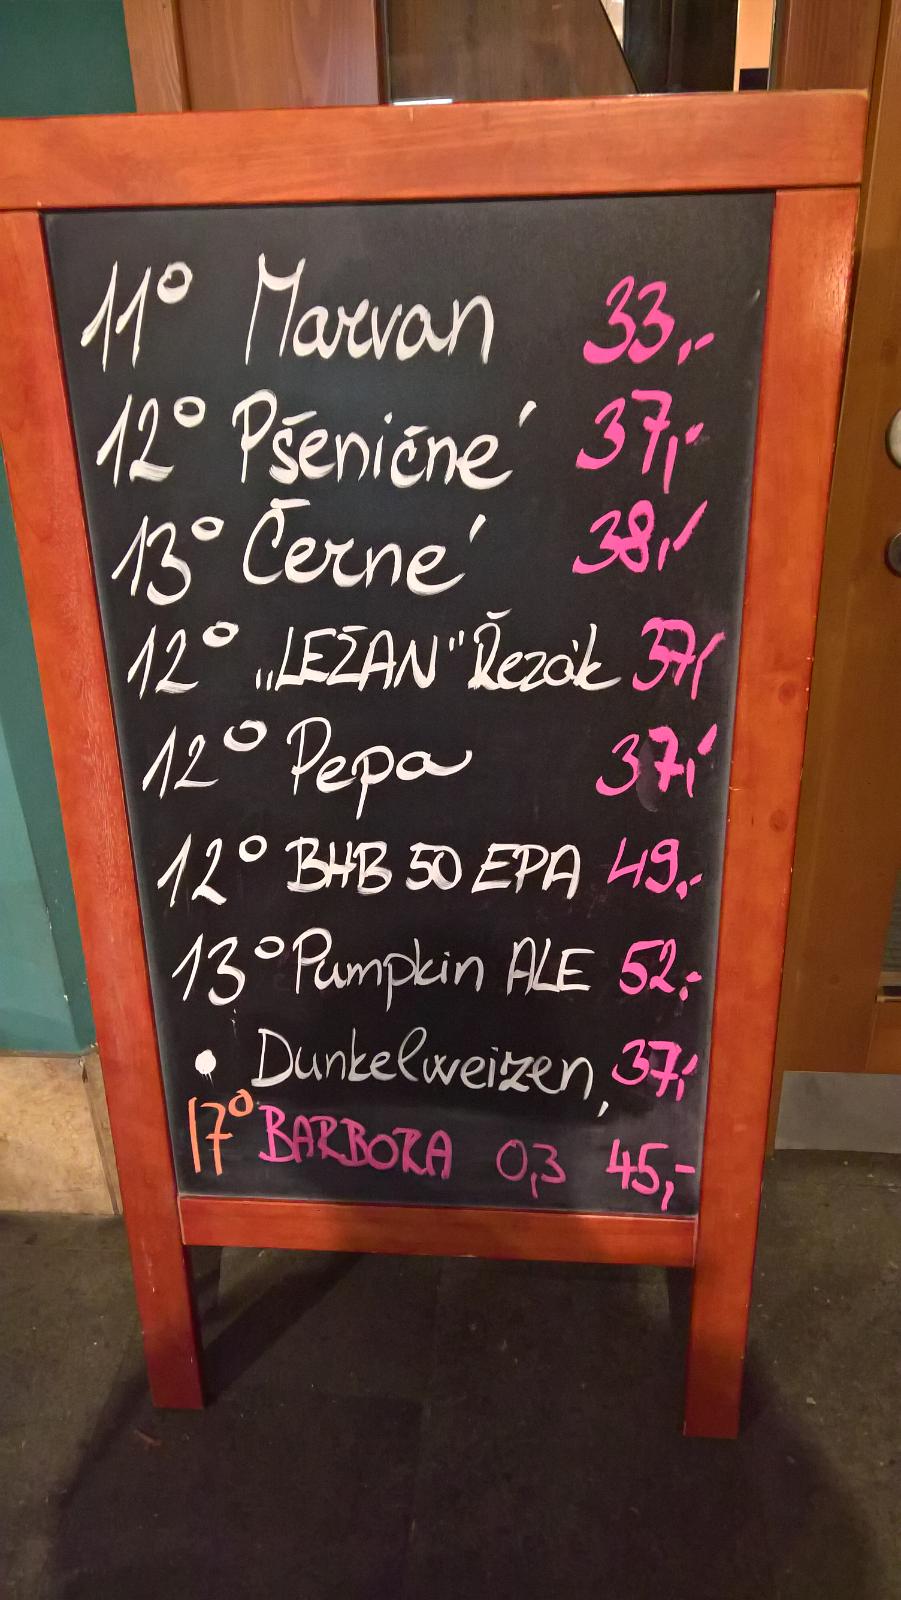 11° Marvan 33,-
12° Pšeničné 37,-
13° Černé 38,-
12° „LEŽÁN" Řezák 37,-
12° Pepa 37,-
12° BHB 50 EPA 49,-
13° Pumpkin ALE 52,-
• Dunkelweizen, 37,-
17° BARBORA 0,3 45,-